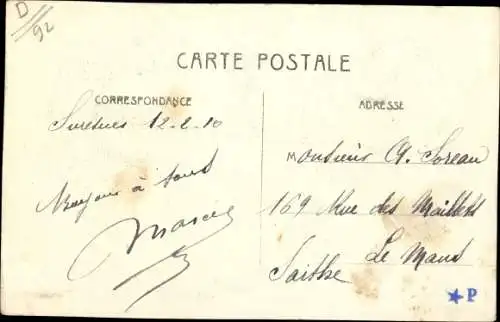 D
92
CARTE POSTALE
CORRESPONDANCE
ADRESSE
Suresnes 12-2-10
Bonjour à tous
Marcel
Monsieur A. Soreau
169 Rue des Maillets
Le Mans
Sarthe
P